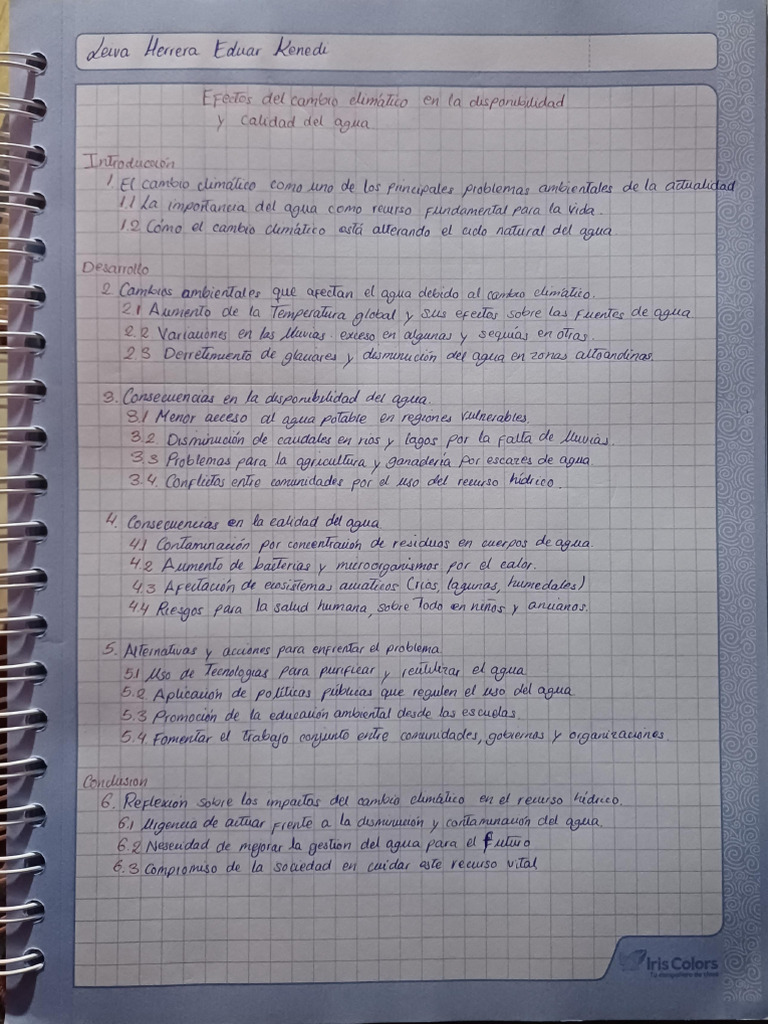 Leiva Herrera Eduar Kenedi
Efectos del cambio climático en la disponibilidad
y calidad del agua
Introducción
1. El cambio climático como uno de los principales problemas ambientales de la actualidad
1.1 La importancia del agua como recurso fundamental para la vida.
1.2 Cómo el cambio climático está alterando el ciclo natural del agua.
Desarrollo
2. Cambios ambientales que afectan el agua debido al cambio climático.
2.1 Aumento de la Temperatura global y sus efectos sobre las fuentes de agua
2.2 Variaciones en las lluvias: exceso en algunas y sequías en otras.
2.3 Derretimiento de glaciares y disminución del agua en zonas altoandinas.
3. Consecuencias en la disponibilidad del agua.
3.1 Menor acceso al agua potable en regiones vulnerables.
3.2. Disminución de caudales en ríos y lagos por la falta de lluvias.
3.3 Problemas para la agricultura y ganadería por escases de agua.
3.4. Conflictos entre comunidades por el uso del recurso hídrico.
4. Consecuencias en la calidad del agua
4.1 Contaminación por concentración de residuos en cuerpos de agua.
4.2 Aumento de bacterias y microorganismos por el calor.
4.3 Afectación de ecosistemas acuáticos (ríos, lagunas, humedales)
4.4 Riesgos para la salud humana, sobre Todo en niños y ancianos.
5. Alternativas y acciones para enfrentar el problema
5.1 Uso de Tecnologías para purificar y reutilizar el agua
5.2 Aplicación de políticas públicas que regulen el uso del agua
5.3 Promoción de la educación ambiental desde las escuelas.
5.4. Fomentar el Trabajo conjunto entre comunidades, gobiernos y organizaciones.
Conclusion
6. Reflexión sobre los impactos del cambio climático en el recurso hídrico.
6.1 Urgencia de actuar frente a la disminución y contaminación del agua.
6.2 Nesecidad de mejorar la gestion del agua para el futuro
6.3 Compromiso de la sociedad en cuidar este recurso vital
Iris Colors
Tu compañero de clase